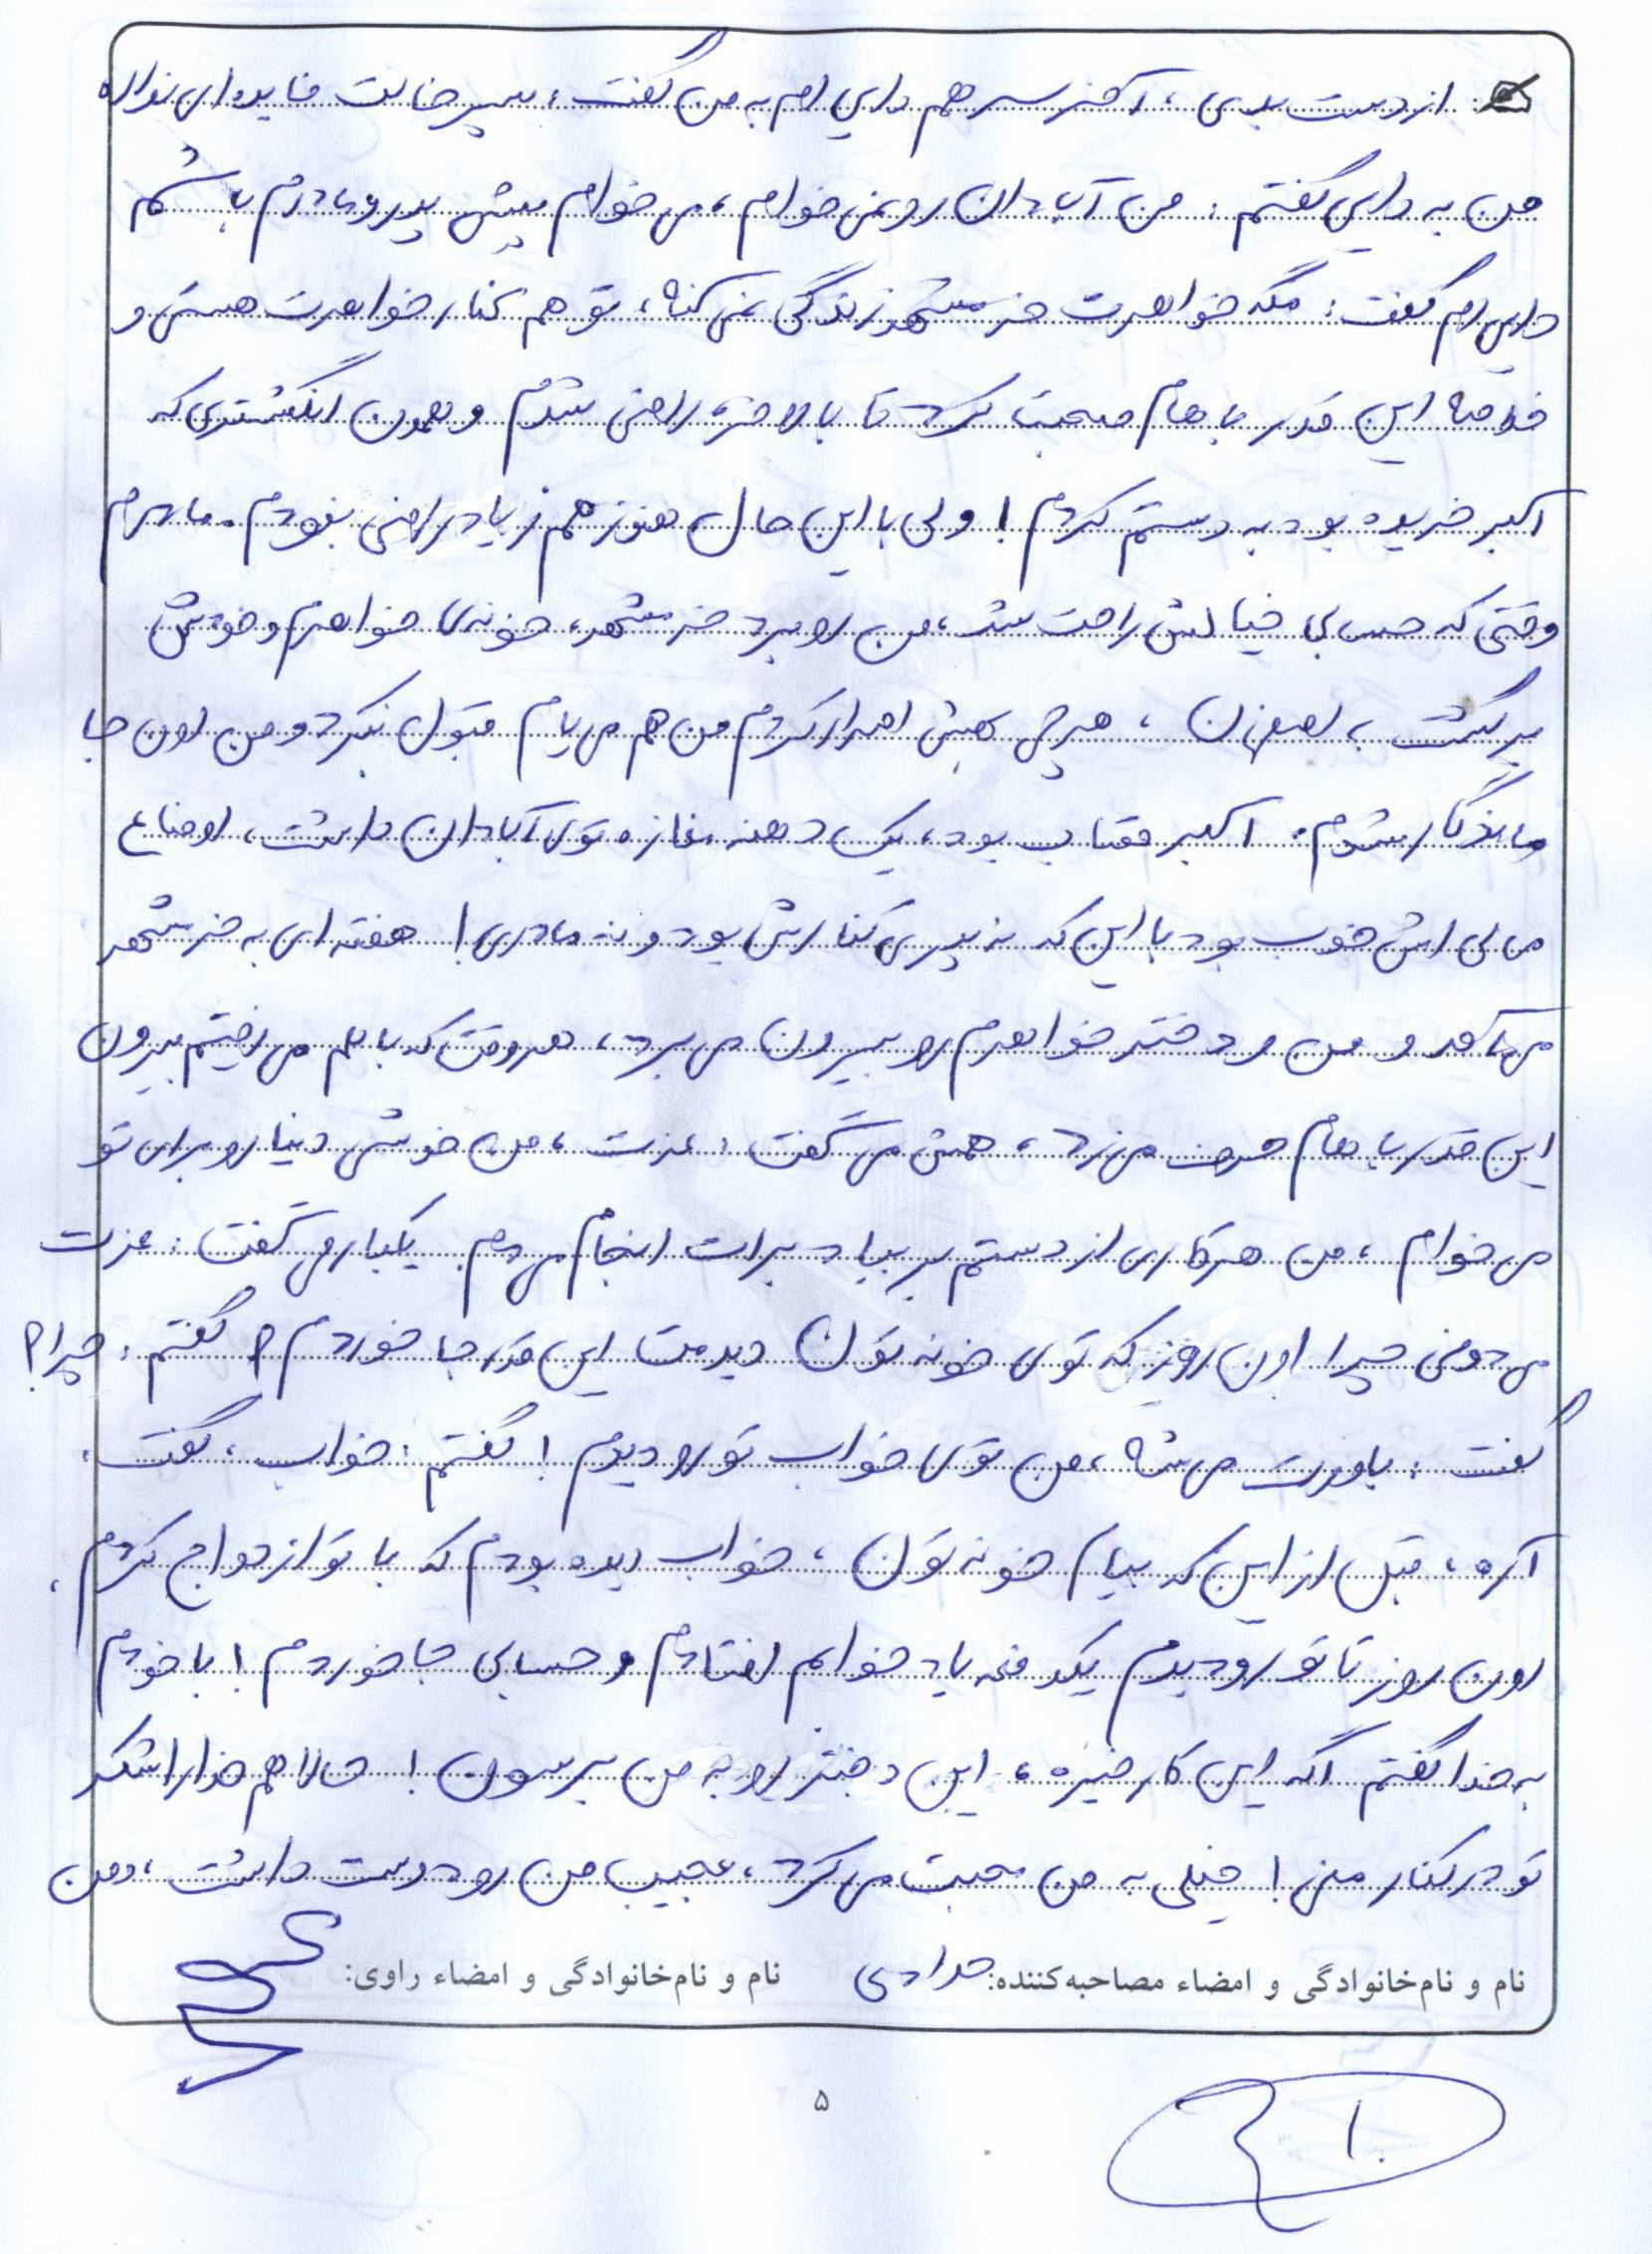 از دست بدی، آخر سر هم دایی ام به من گفت: پسر خالت فایده ای نداره
من به دایی گفتم: من آبادان رو نمی خوام، می خوام پیش پدر و مادرم باشم
دایی ام گفت: مگه خواهرت خرمشهر زندگی نمی کنه، تو هم کنار خواهرت هستی و
خلاصه این قدر باهام صحبت کرد تا بالاخره راضی شدم و همون انگشتری که
اکبر خریده بود به دستم کردم! ولی با این حال هنوز هم زیاد راضی نبودم. مادرم
وقتی که حسابی خیالش راحت شد، من رو برد خرمشهر، خونه ی خواهرم و خودش
برگشت به اصفهان، هر چی بهش اصرار کردم من هم می یام قبول نکرد و من اون جا
ماندگار شدم. اکبر قصاب بود، یک دهنه مغازه توی آبادان داشت، اوضاع
مالی اش خوب بود با این که نه پدری کنارش بود و نه مادری! هفته ای به خرمشهر
می آمد و من و دختر خواهرم رو بیرون می برد، هر وقت که با هم می رفتیم بیرون
این قدر باهام حرف می زد، همش می گفت: عزت، من خوشی دنیا رو برای تو
می خوام، من هر کاری از دستم بر بیاد برات انجام می دم. یکبار می گفت: عزت
می دونی چرا اون روز که توی خونه تون دیدمت این قدر جا خوردم؟ گفتم: چرا؟
گفت: باورت می شه، من توی خواب تو رو دیدم! گفتم: خواب، گفت:
آره، قبل از این که بیام خونه تون، خواب دیده بودم که با تو ازدواج کردم،
اون روز تا تو رو دیدم یکدفعه یاد خوابم افتادم و حسابی جا خوردم! با خودم
به خدا گفتم اگه این کار خیره، این دختر رو به من برسون! حالا هم خدا را شکر
تو در کنار منی! خیلی به من محبت می کرد، عجیب من رو دوست داشت، ومن
نام و نام‌خانوادگی و امضاء مصاحبه‌کننده: نام و نام‌خانوادگی و امضاء راوی:
۵